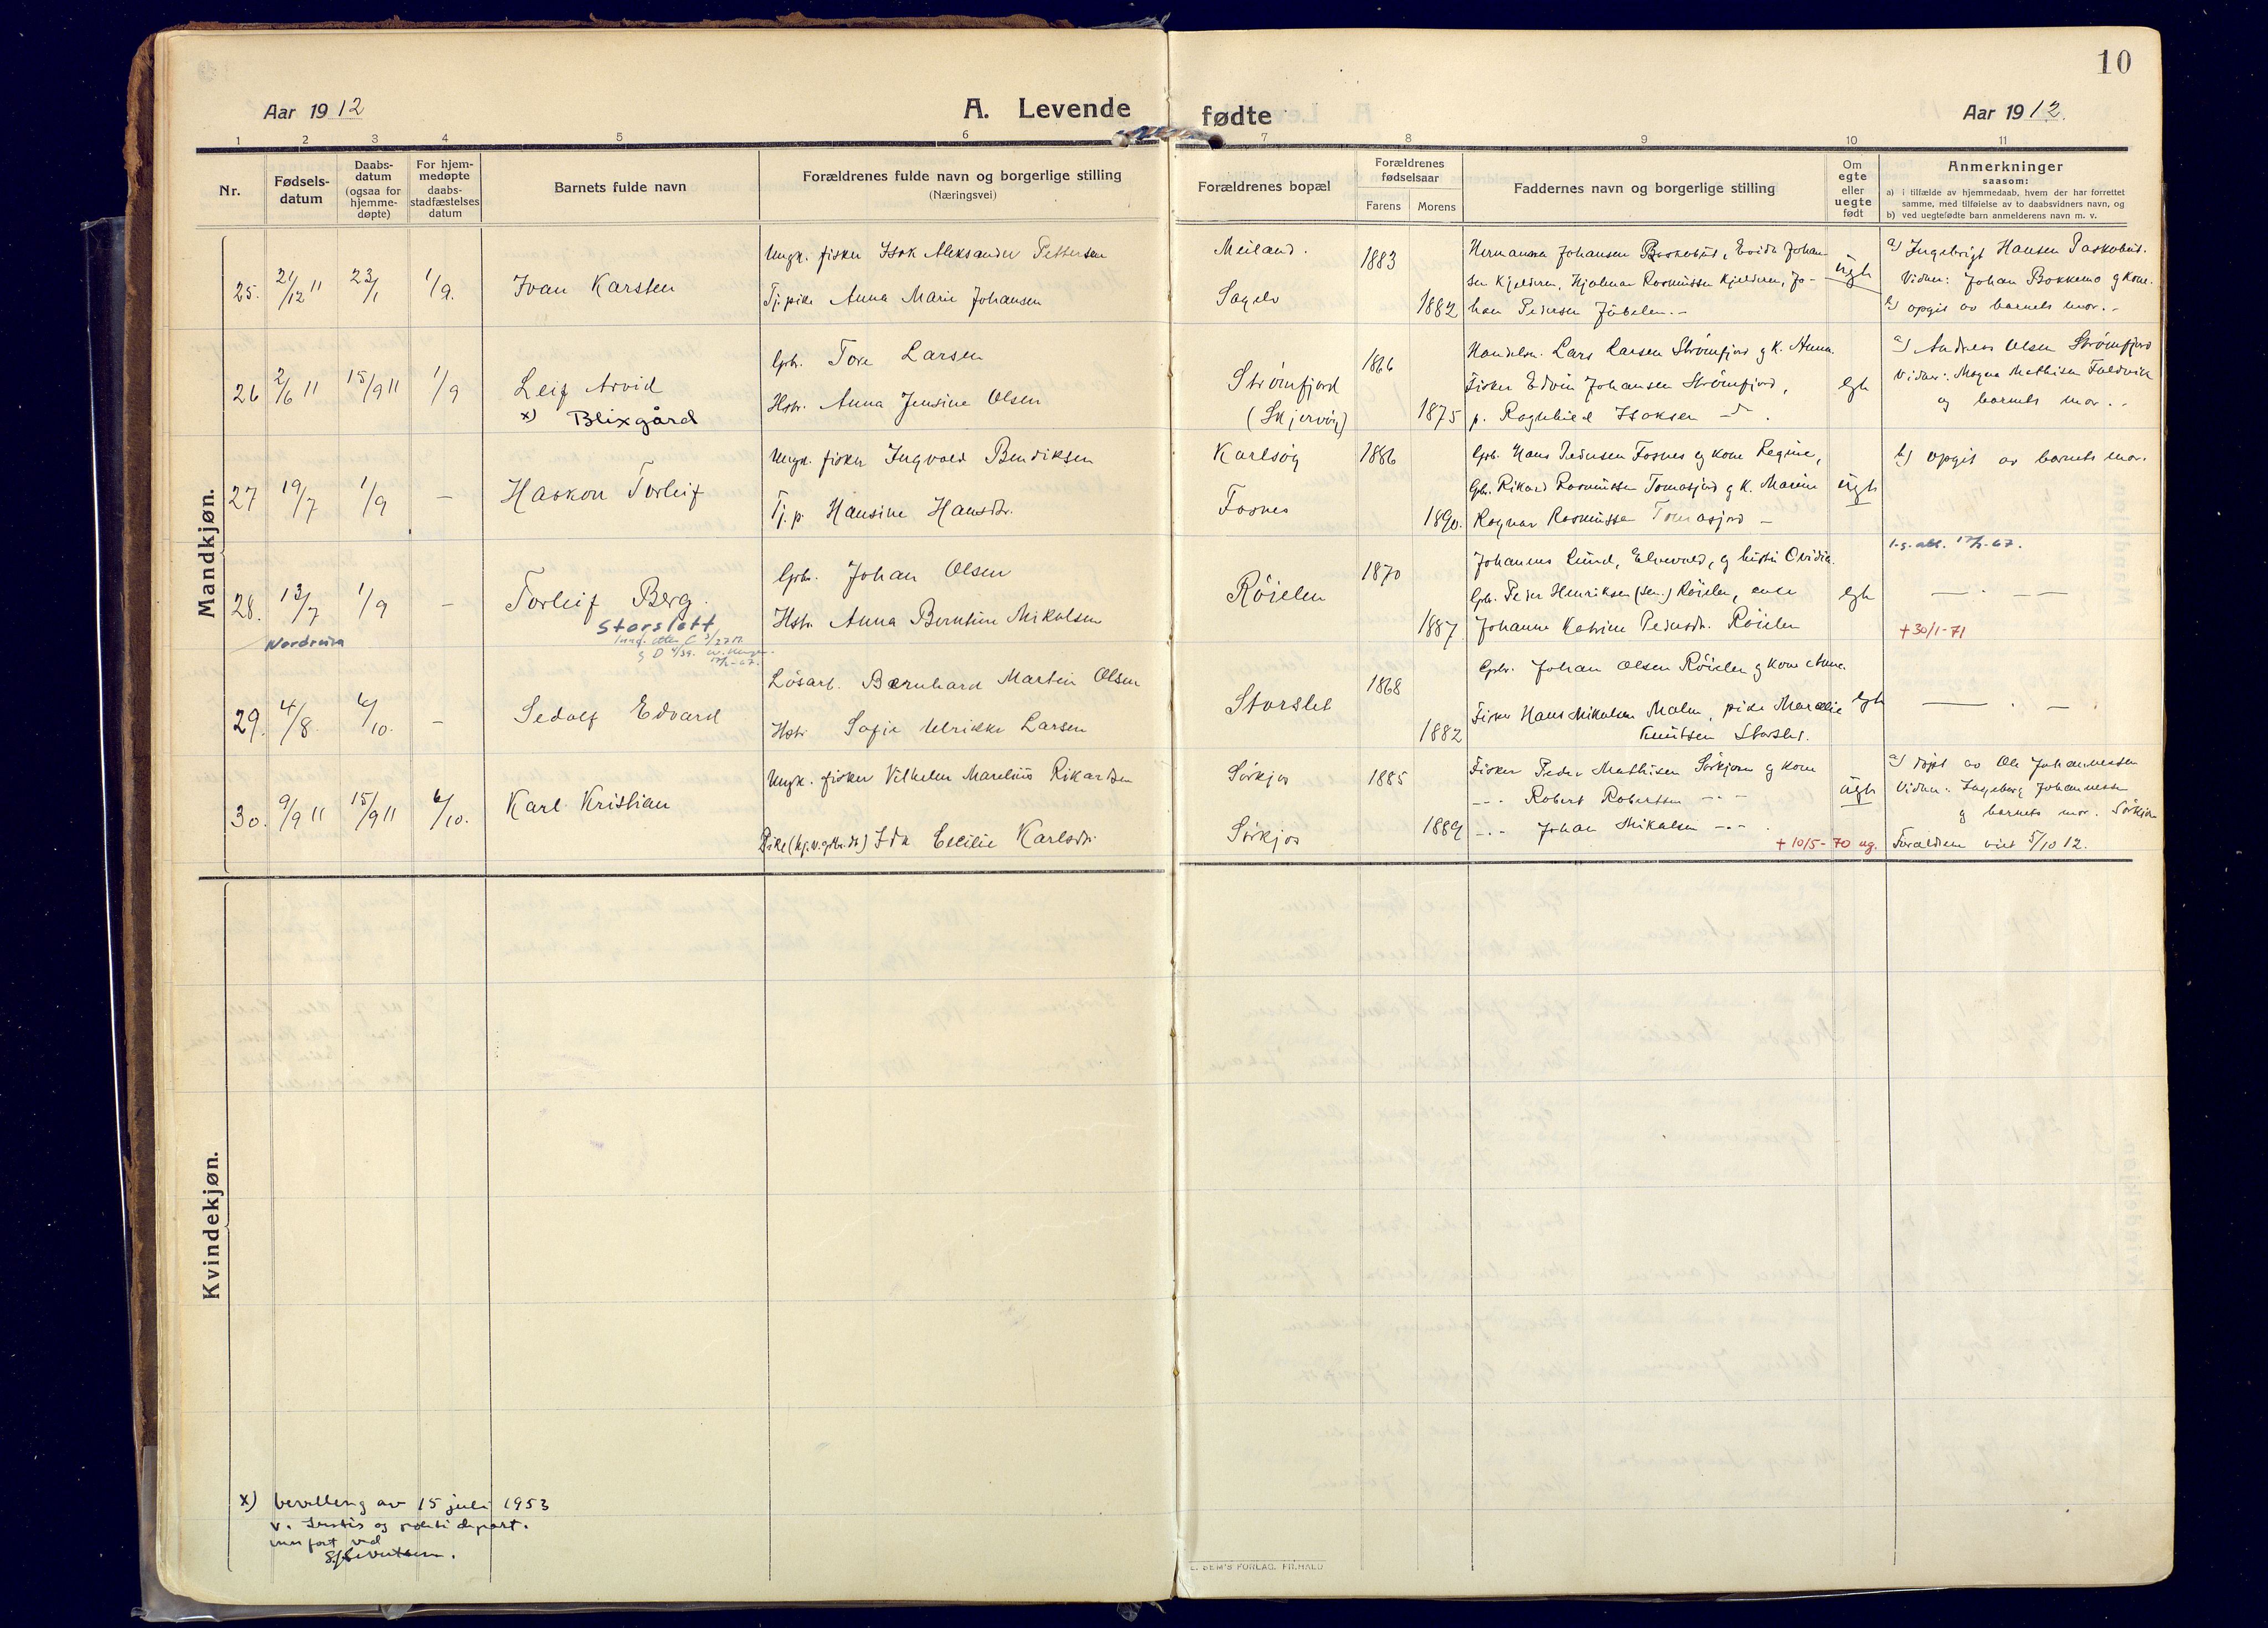 10
Aar 1912
A. Levende fødte
Aar 1912.
1 2 3 4 5 6 7 8 9 10 11
Nr.
Fødsels-
datum
Daabs-
datum
(ogsaa for
hjemme-
døpte)
For hjem-
medøpte
daabs-
stadfæstelses
datum
Barnets fulde navn
Forældrenes fulde navn og borgerlige stilling
(Næringsvei)
Forældrenes bopæl
Forældrenes
fødselsaar
Farens
Morens
Faddernes navn og borgerlige stilling
Om
egte
eller
uegte
født
Anmerkninger
saasom:
a) i tilfælde av hjemmedaab, hvem der har forrettet
samme, med tilføielse av to daabsvidners navn, og
b) ved uegtefødte barn anmelderens navn m. v.
Mandkjøn.
25. 21/12 11 23/1 1/9.
Ivan Karsten
Ungk. fisker Isak Aleksander Pettersen
Tj. pike Anna Marie Johansen
Meiland.
Sagelv
1883
1882
Hermann Johansen
sen Kjelderen, Hjalmar Rasmussen Kjelderen, Jo-
han Pedersen
ügh
a) Ingebrigt Hansen
Vidner: Johan Bakkemo og kone.
b) opgit av barnets mor.
26 2/6 11 15/9 11 1/9
Leif Arvid
x) Blixgård
Gbr. Tore Larsen
Hstr. Anna Jensine Olsen
Strømfjord
(Skjervøy)
1866
1875
Handelsm. Lars Larsen Strømfjord og k. Anna.
Fisker Edvin Johansen Strømfjord,
p. Ragnhild Isaksen
egh
a) Andreas Olsen Strømfjord
Vidner: Magna Mathisen
og barnets mor.
27 19/7 1/9 –
Haakon Torleif
Ungk. fisker Ingvald Bendiksen
Tj. p. Hansine Hansdtr.
Karlsøy
Fosnes
1886
1890.
Gbr. Hans Pedersen Fosnes og kone Regine,
Gbr. Rikard Rasmussen Tomasjord og k. Marie
Ragnar Rasmussen Tomasjord –
ügh
b) opgit av barnets mor.
28. 13/7 1/9 –
Nordreisa
Torleif Berg.
Storslett
Gbr. Johan Olsen
Hstr. Anna Berntine Mikalsen
Röielen
1870
1887
Johannes Lund, Elvevold, og hustru Ovidia.
Gbr. Peder Henriksen (sen.) Röielen, enke
Johanne Katrine Pedersdr. Röielen
egh
+30/1-71
29. 4/8 6/10. –
Sedolf Edvard
Lösarb. Bernhard Martin Olsen
Hstr Sofie Ulrikke Larsen
Storslet
1868
1882
Gbr. Johan Olsen Röielen og kone Anne.
Fisker Hans Mikalsen Malm, pike Marælie
Knutsen Storslet.
egh
30. 9/9 11 15/9 11 6/10.
Karl Kristian
Ungk. fisker Vilhelm Marelius Rikardsen
Pike (hj.v. gbr.dt) Ida Cecilie Karlsdr.
Sörkjos
Sörkjos
1885
1889
Fisker Peder Mathisen Sörkjosen og kone
–"– Robert Robertsen –"–
–"– Johan Mikalsen –"–
+ 10/5-70 ag.
ügh
a) döpt av Ole Johannessen
Vidner: Ingeborg Johannessen
og barnets mor. Sörkjosen
Forældrene viet 5/10 12.
Kvindekjøn.
x) bevilling av 15 juli 1953
v. Justis og politidepart.
innfört ved
E. SEM'S FORLAG, FR.HALD